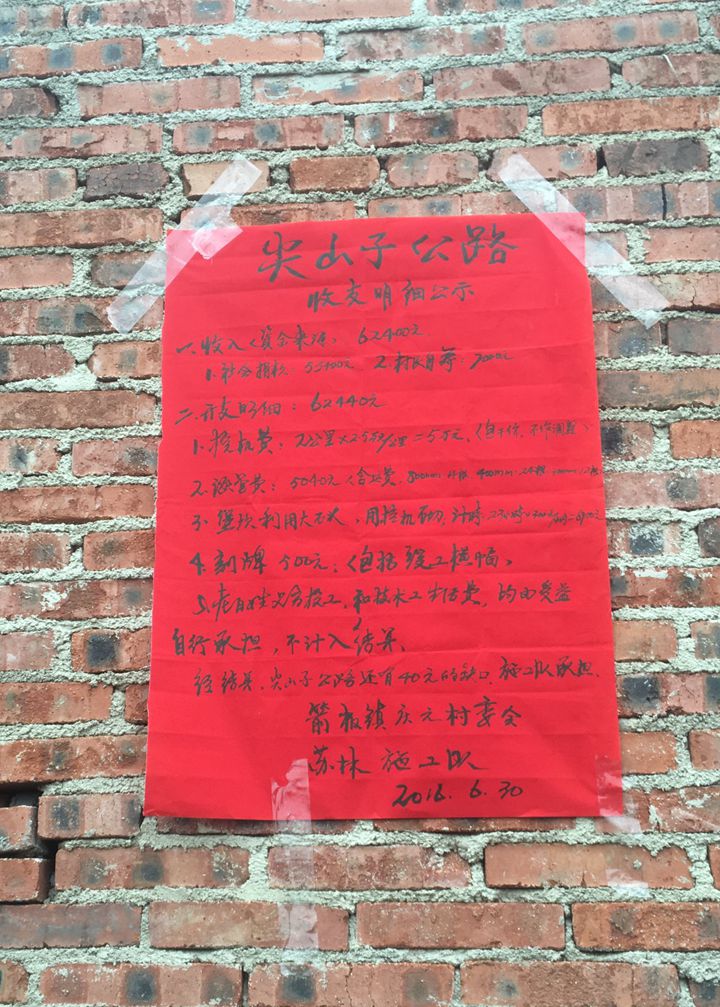 尖山子公路
收支明细公示
一、收入（资金来源） 62400元
1.社会捐款：55400元 2.村民自筹：7000元
二、开支明细：62440元
1.挖机费：2公里×2.5万/公里=5万元，（包干价，不作调整）
2.涵管费：5040元（含运费，
3.堡坎利用大石头，用挖机
4.刻牌 500元，（包括竣工横幅）
5.老百姓义务投工，和技术工 生活费，均由受益
自行承担，不计入结算。
经结算，尖山子公路还有40元的缺口，施工队承担。
箭板镇庆元村委会
苏林 施工队
2016.6.30